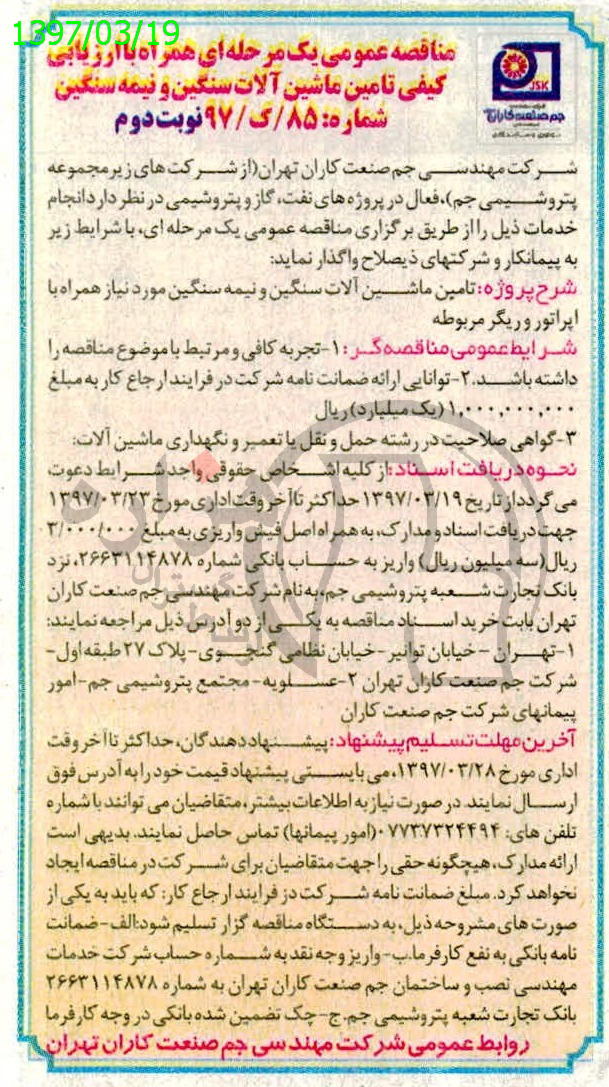 1397/03/19
مناقصه عمومی یک مرحله ای همراه با ارزیابی
کیفی تامین ماشین آلات سنگین و نیمه سنگین
شماره: ۸۵/گ/۹۷ نوبت دوم
JSK
جم صنعت کاران
شرکت مهندسی جم صنعت کاران تهران(از شرکت های زیرمجموعه
پتروشیمی جم)،فعال در پروژه های نفت، گاز و پتروشیمی در نظر دارد انجام
خدمات ذیل را از طریق برگزاری مناقصه عمومی یک مرحله ای، با شرایط زیر
به پیمانکار و شرکتهای ذیصلاح واگذار نماید:
شرح پروژه: تامین ماشین آلات سنگین و نیمه سنگین مورد نیاز همراه با
اپراتور و ریگر مربوطه
شرایط عمومی مناقصه گر: ۱-تجربه کافی و مرتبط با موضوع مناقصه را
داشته باشد. ۲-توانایی ارائه ضمانت نامه شرکت در فرایند ارجاع کار به مبلغ
۱,۰۰۰,۰۰۰,۰۰۰ (یک میلیارد) ریال
۳-گواهی صلاحیت در رشته حمل و نقل یا تعمیر و نگهداری ماشین آلات:
نحوه دریافت اسناد: از کلیه اشخاص حقوقی واجد شرایط دعوت
می گردد از تاریخ ۱۳۹۷/۰۳/۱۹ حداکثر تا آخر وقت اداری مورخ ۱۳۹۷/۰۳/۲۳
جهت دریافت اسناد و مدارک، به همراه اصل فیش واریزی به مبلغ ۳/۰۰۰/۰۰۰
ریال(سه میلیون ریال) واریز به حساب بانکی شماره ۲۶۶۳۱۱۴۸۷۸، نزد
بانک تجارت شعبه پتروشیمی جم، به نام شرکت مهندسی جم صنعت کاران
تهران بابت خرید اسناد مناقصه به یکی از دو آدرس ذیل مراجعه نمایند:
۱-تهران - خیابان توانیر -خیابان نظامی گنجوی-پلاک ۲۷ طبقه اول-
شرکت جم صنعت کاران تهران ۲-عسلویه-مجتمع پتروشیمی جم-امور
پیمانهای شرکت جم صنعت کاران
آخرین مهلت تسلیم پیشنهاد: پیشنهاد دهندگان، حداکثر تا آخر وقت
اداری مورخ ۱۳۹۷/۰۳/۲۸، می بایستی پیشنهاد قیمت خود را به آدرس فوق
ارسال نمایند. در صورت نیاز به اطلاعات بیشتر، متقاضیان می توانند با شماره
تلفن های: ۰۷۷۳۷۳۲۴۴۹۴(امور پیمانها) تماس حاصل نمایند. بدیهی است
ارائه مدارک، هیچگونه حقی را جهت متقاضیان برای شرکت در مناقصه ایجاد
نخواهد کرد. مبلغ ضمانت نامه شرکت در فرایند ارجاع کار: که باید به یکی از
صورت های مشروحه ذیل، به دستگاه مناقصه گزار تسلیم شود:الف-ضمانت
نامه بانکی به نفع کارفرما.ب-واریز وجه نقد به شماره حساب شرکت خدمات
مهندسی نصب و ساختمان جم صنعت کاران تهران به شماره ۲۶۶۳۱۱۴۸۷۸
بانک تجارت شعبه پتروشیمی جم.ج-چک تضمین شده بانکی در وجه کارفرما
روابط عمومی شرکت مهندسی جم صنعت کاران تهران